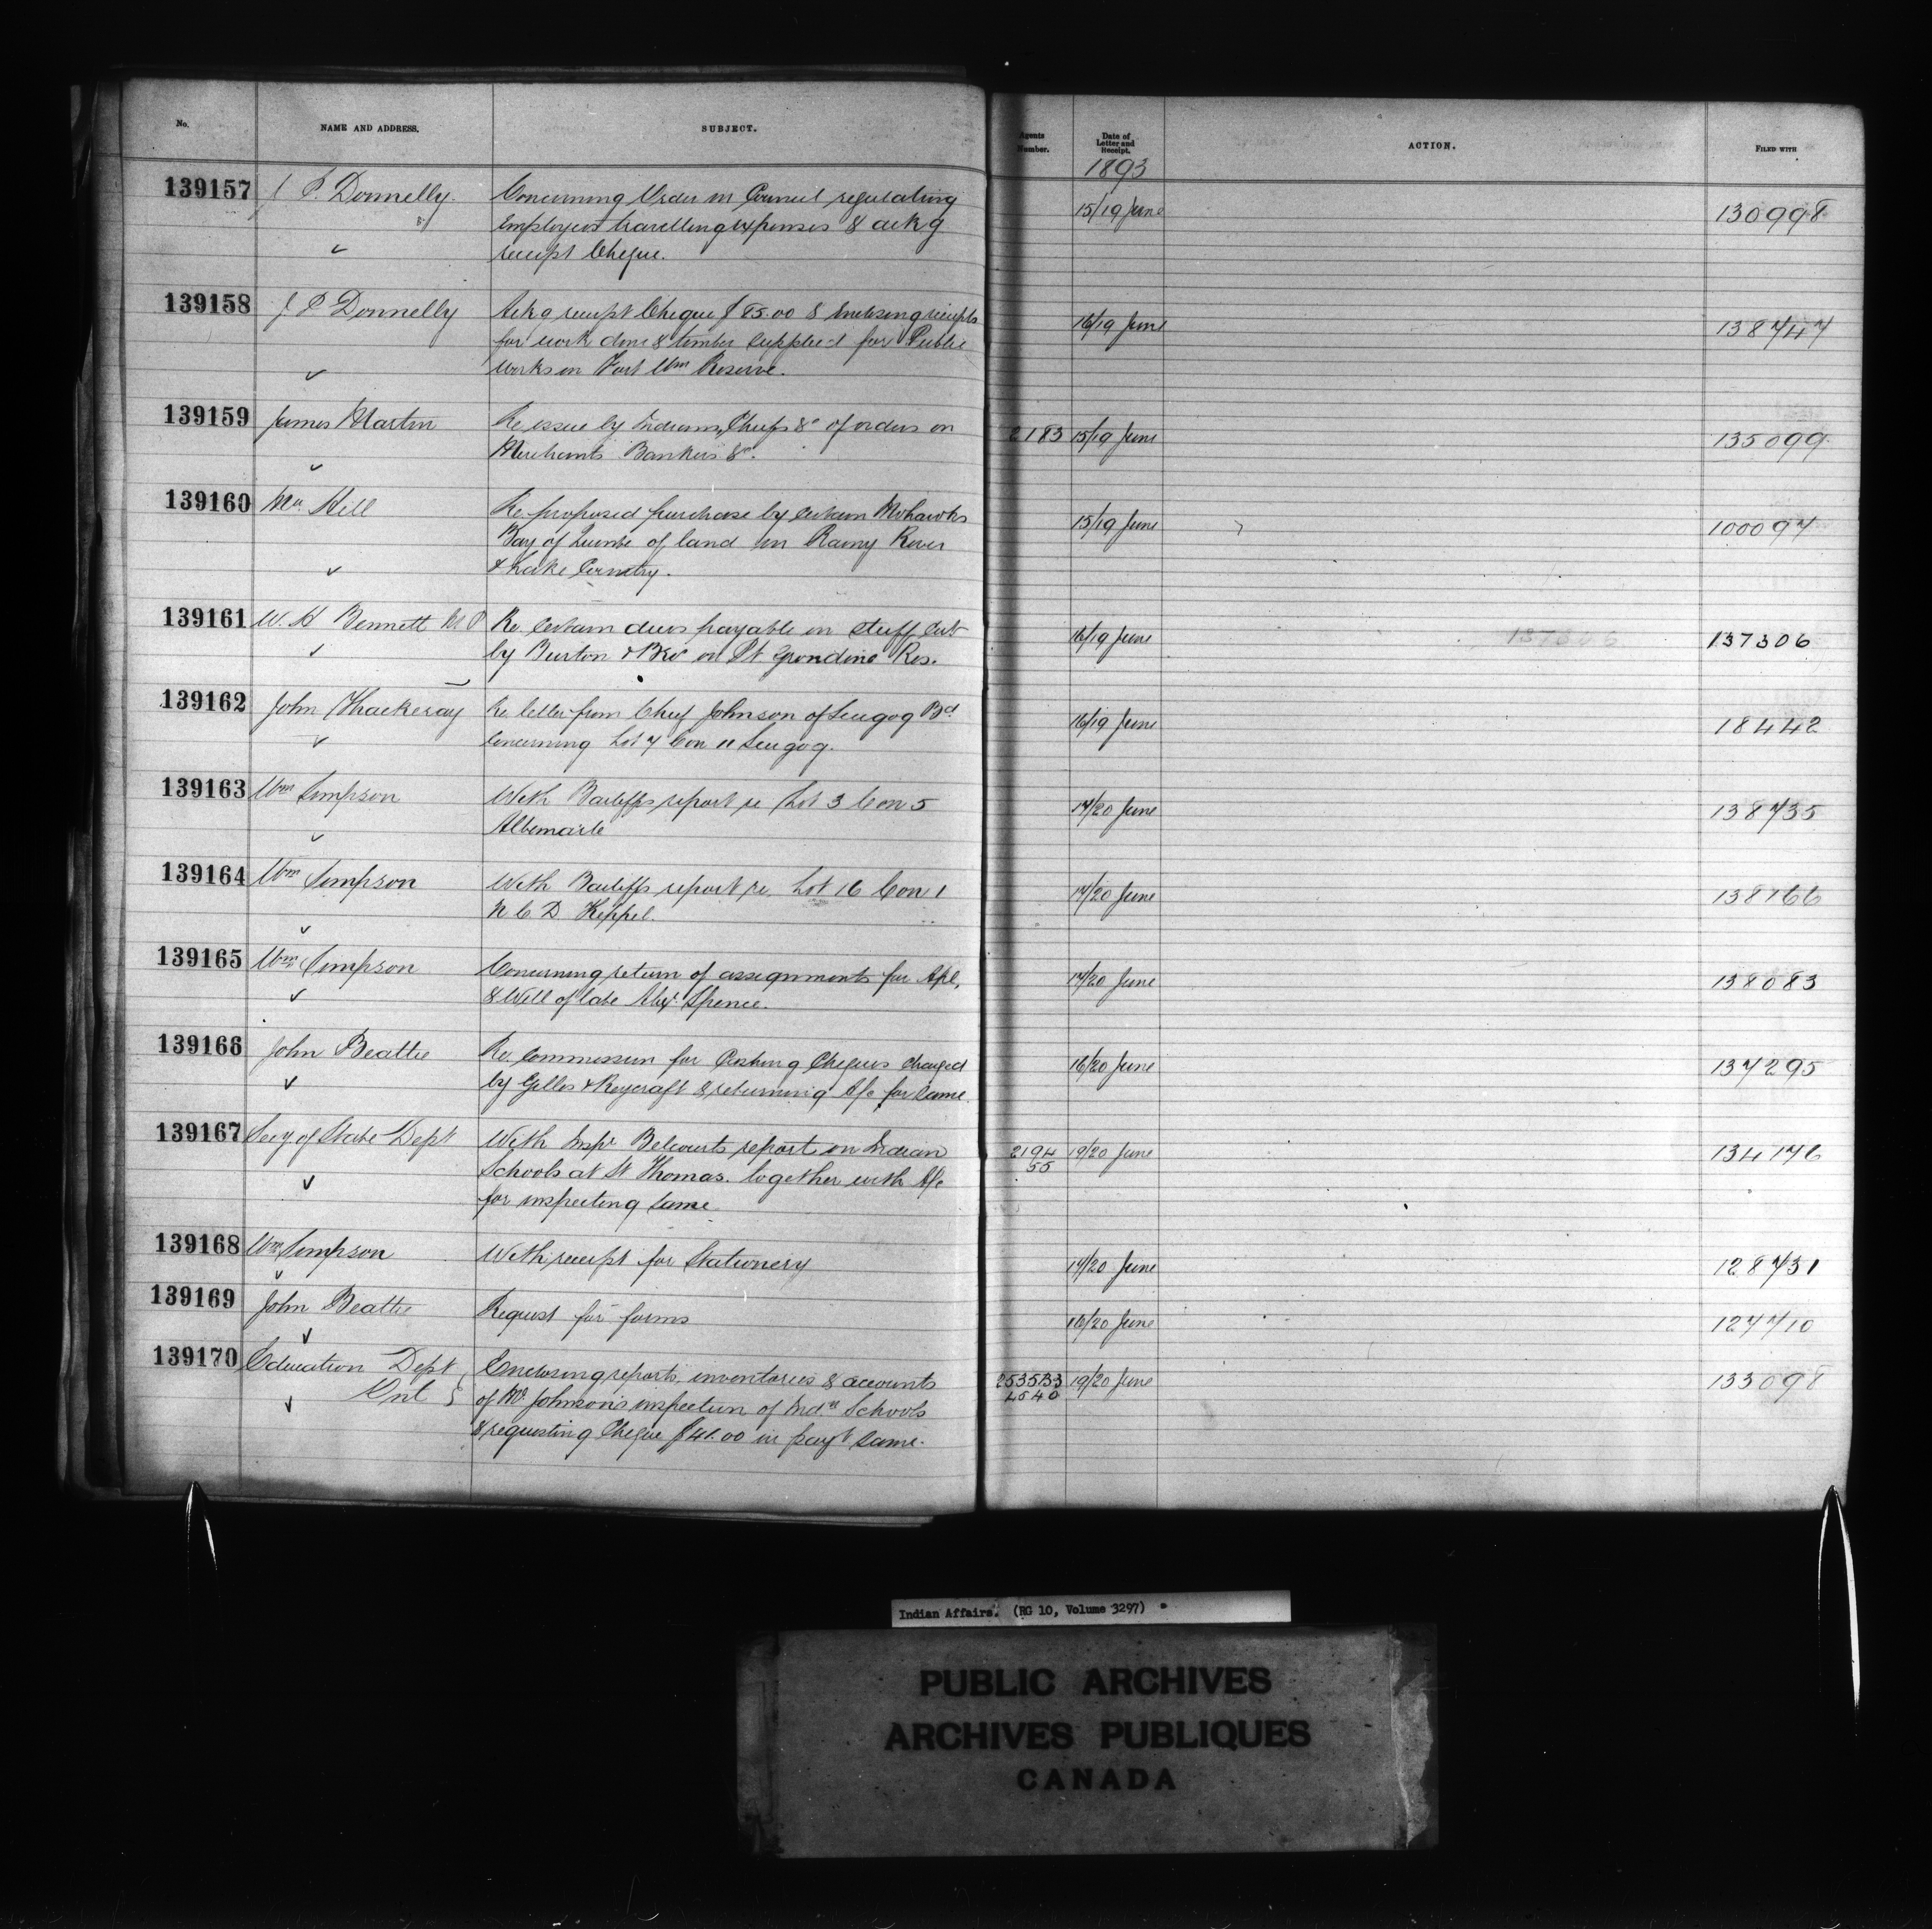 No. NAME AND ADDRESS. SUBJECT. Agents Number. Date of Letter and Receipt. ACTION. FILED WITH
1893
139157 J. P. Donnelly. Concerning Order in Council regulating 15/19 June 130998
Employees travelling expenses & ackg
receipt Cheque.
139158 J. P. Donnelly Ackg receipt Cheque $85.00 & Enclosing receipts 16/19 June 138747
for work done & timber supplied for Public
Works on Fort Wm Reserve.
139159 James Martin Re issue by Indians, Chiefs &c of orders on 2183 15/19 June 135099
Merchants Bankers &c.
139160 Hill Re. proposed purchase by certain Mohawks 15/19 June 100097
Bay of Quinte of land in Rainy River
& Lake Country.
139161 W. H Bennett M P Re. Certain dues payable on stuff cut 16/19 June 137306
by Burton & Bro on Pt Grondine Res.
139162 John Thackeray Re letter from Chief Johnson of Scugog Bd 16/19 June 18442
concerning Lot 7 Con 11 Scugog.
139163 Wm Simpson With Bailiffs report re Lot 3 Con 5 17/20 June 138735
Albemarle
139164 Wm Simpson With Bailiffs report re. Lot 16 Con 1 17/20 June 138166
N C D Keppel
139165 Wm Simpson Concerning return of assignments for Apl, 17/20 June 138083
& Will of late Alexr Spence.
139166 John Beattie Re. Commission for Cashing Cheques charged 16/20 June 137295
by Gilles & Reycraft & returning A/c for same
139167 Secy of State Dept With Inspr Belcourts report on Indian 2194 19/20 June 134176
55
Schools at St Thomas. together with A/c
for inspecting same
139168 Wm Simpson With receipt for Stationery 17/20 June 128731
139169 John Beattie Request for forms 16/20 June 127710
139170 Education Dept Enclosing reports inventories & accounts 19/20 June 133098
Ont of Mr. Johnson's inspection of Indn Schools 4540
& requesting Cheque $41.00 in payt same.
Indian Affairs. (RG 10, Volume 3297)
PUBLIC ARCHIVES
ARCHIVES PUBLIQUES
CANADA